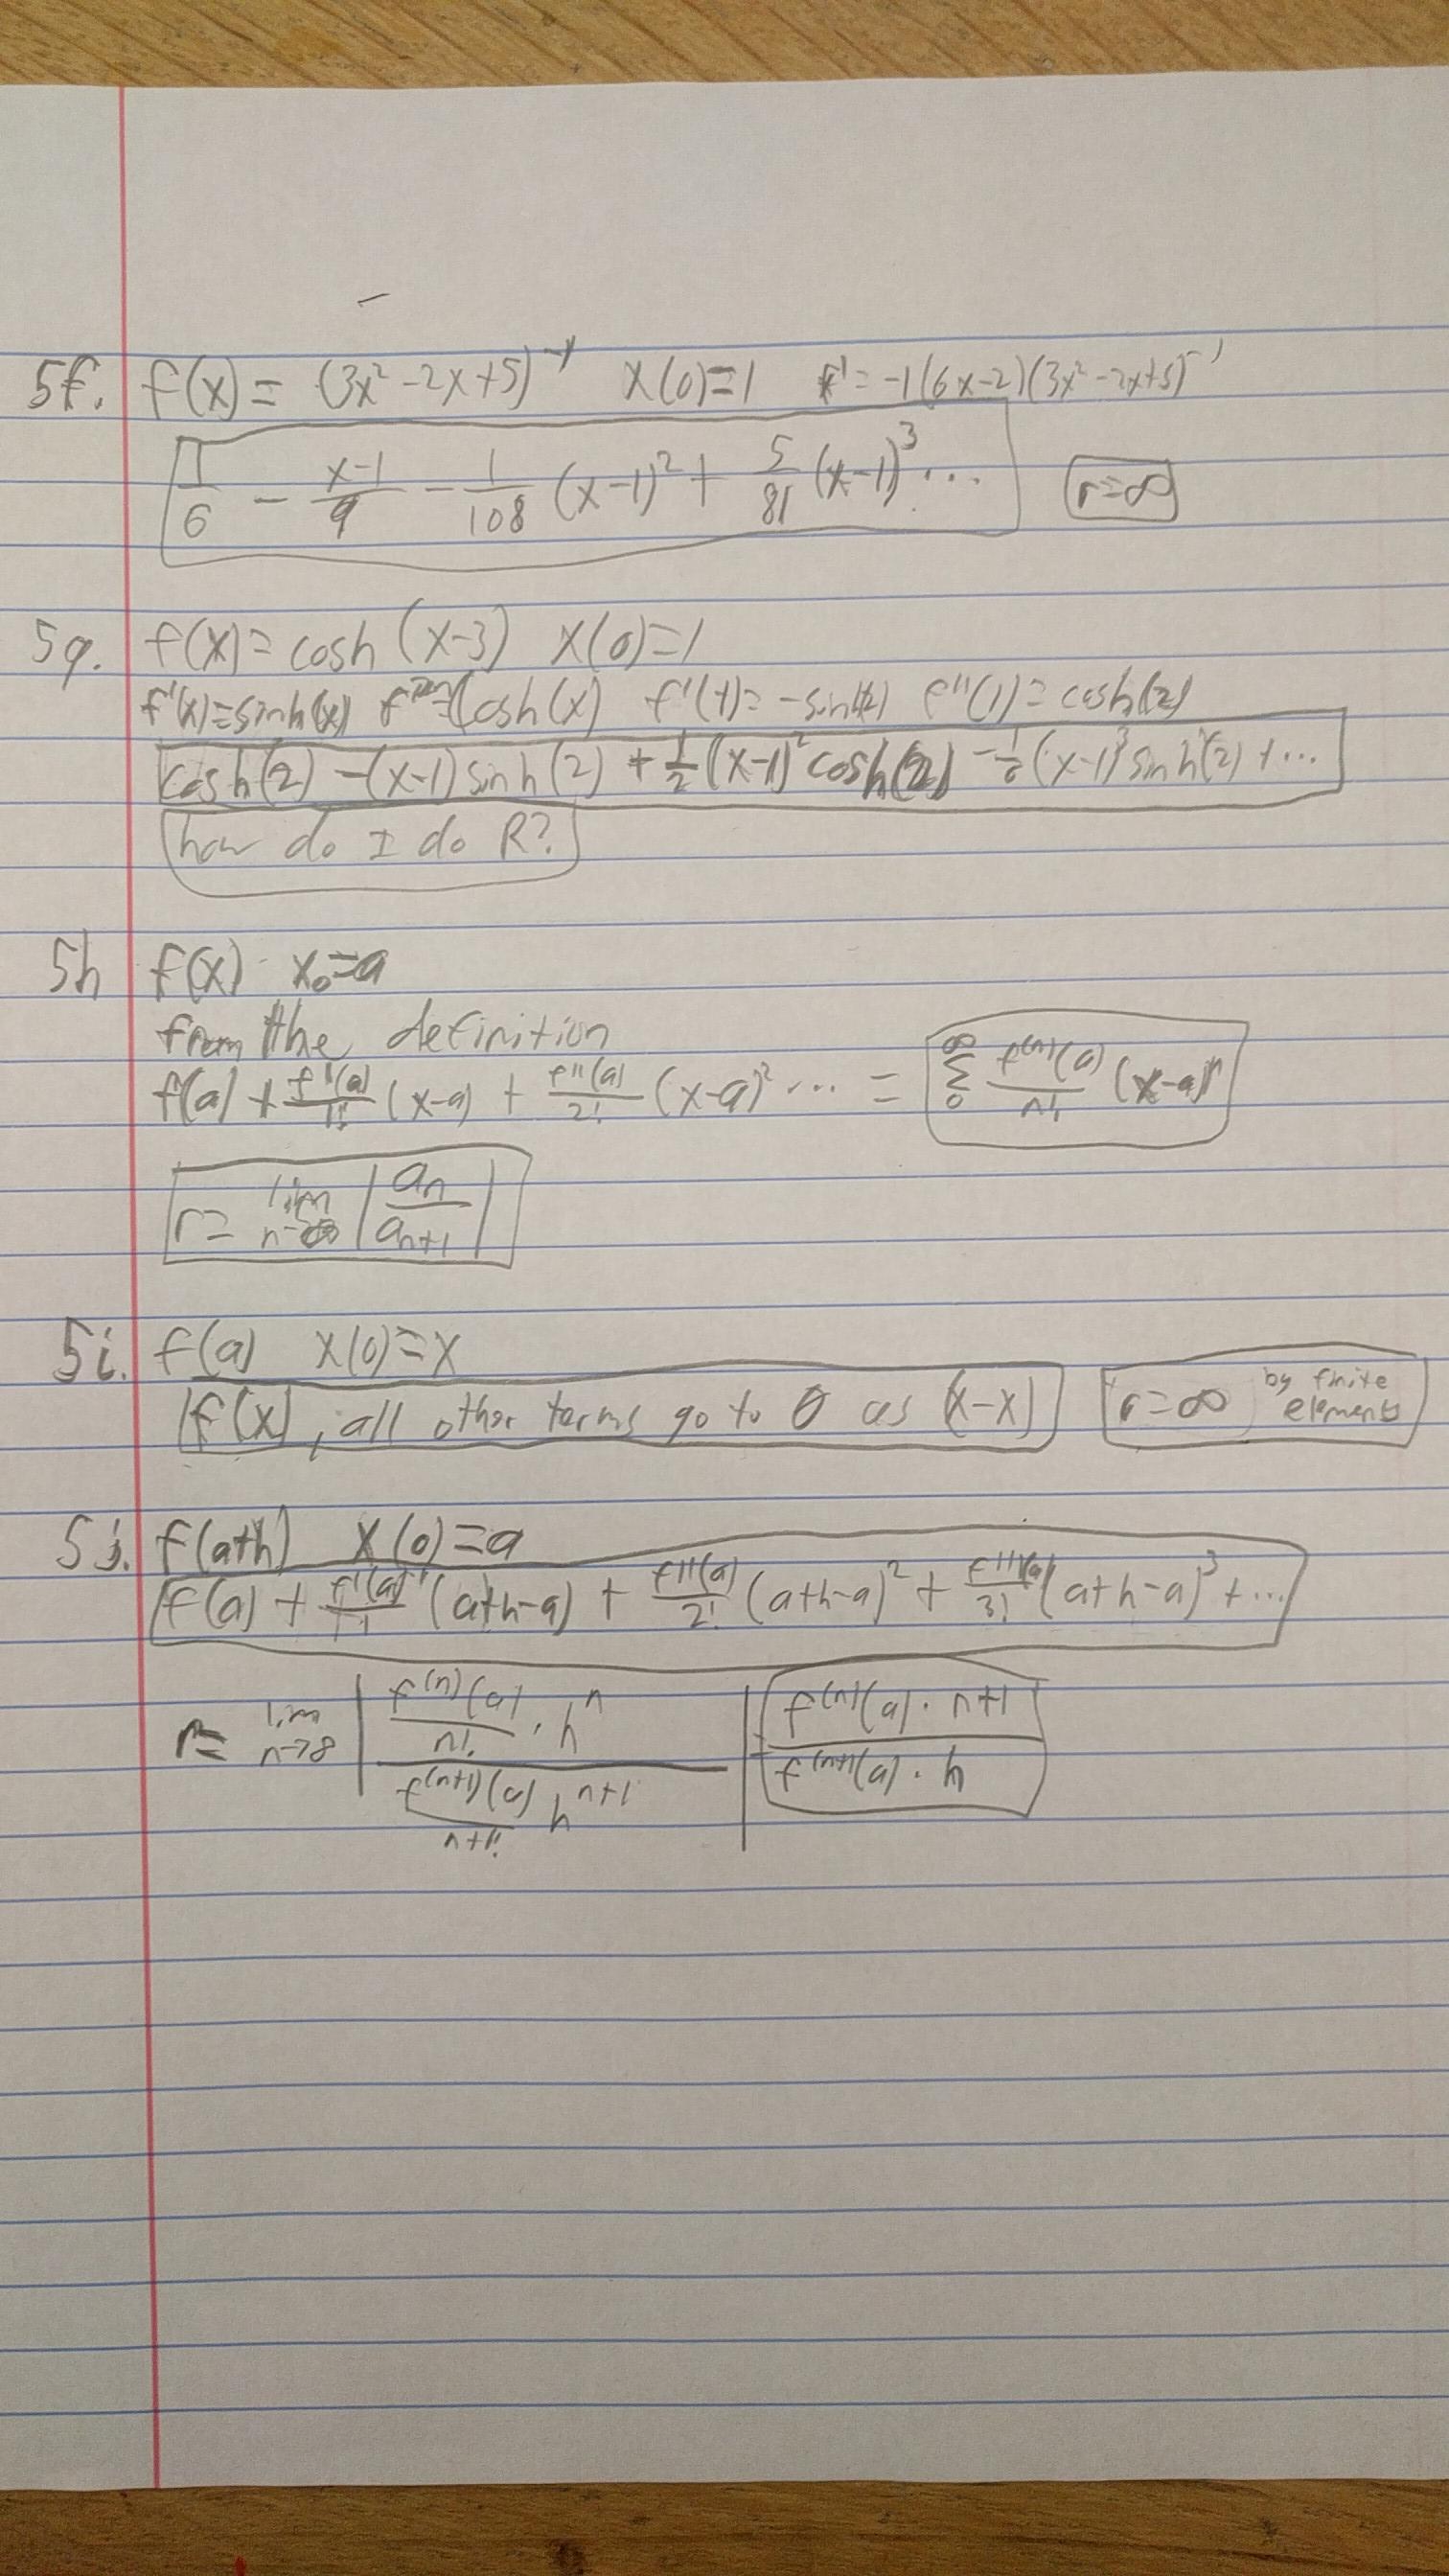 5f. f(x) = (3x² -2x+5)⁻¹ x(0)=1 f' = -1(6x-2)(3x²-2x+5)⁻¹
1/6 - (x-1)/9 - 1/108 (x-1)² + 5/81 (x-1)³ ... r=∞
5g. f(x) = cosh (x-3) x(0)=1
f'(x)=sinh(x) cosh(x) f'(1)= -sinh(2) f''(1) = cosh(2)
cosh(2) -(x-1) sinh(2) + 1/2 (x-1)² cosh(2) - 1/6 (x-1)³ sinh(2) + ...
how do I do R?
5h f(x) x₀=a
from the definition
f(a) + f'(a)/1! (x-a) + f''(a)/2! (x-a)² ... = ∞ Σ 0 f⁽ⁿ⁾(a)/n! (x-a)ⁿ
r = lim n→∞ |aₙ/aₙ₊₁|
5i. f(a) x(0)=x
f(x), all other terms go to 0 as (x-x) r=∞ by finite elements
5j. f(a+h) x(0)=a
f(a) + f'(a)/1! (a+h-a) + f''(a)/2! (a+h-a)² + f'''(a)/3! (a+h-a)³ + ...
r= lim n→∞ | (f⁽ⁿ⁾(a)/n! · hⁿ) / (f⁽ⁿ⁺¹⁾(a)/n+1! hⁿ⁺¹) | (f⁽ⁿ⁾(a) · n+1) / (f⁽ⁿ⁺¹⁾(a) · h)